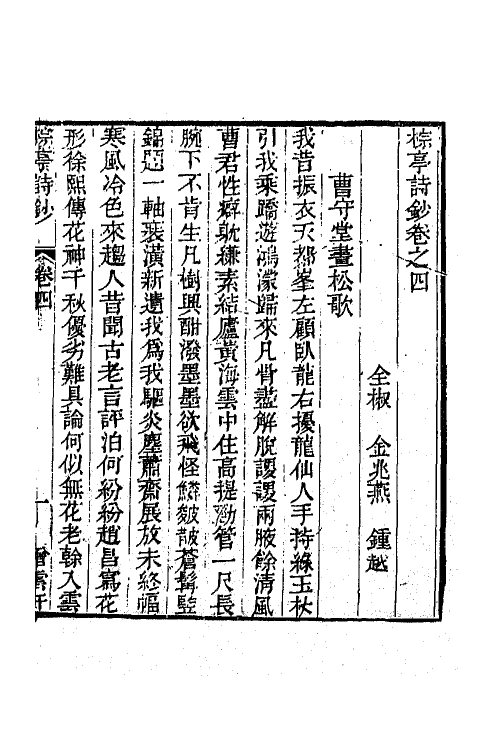 棕亭詩鈔卷之四
全椒　金兆燕　鍾越
曹守堂畫松歌
我昔振衣天都峯左顧臥龍右擾龍仙人手持綠玉杖
引我乘蹻遊鴻濛歸來凡骨盡解脫謖謖兩腋餘清風
曹君性癖躭縑素結廬黃海雲中住高提勁管一尺長
腕下不肯生凡樹興酣潑墨墨欲飛怪鱗皴皵蒼髯豎
錦贉一軸裝潢新遺我爲我驅炎塵蕭齋展放未終幅
寒風冷色來趨人昔聞古老言評泊何紛紛趙昌寫花
形徐熙傳花神千秋優劣難具論何似無花老榦入雲
棕亭詩鈔
卷四
一
贈雲軒